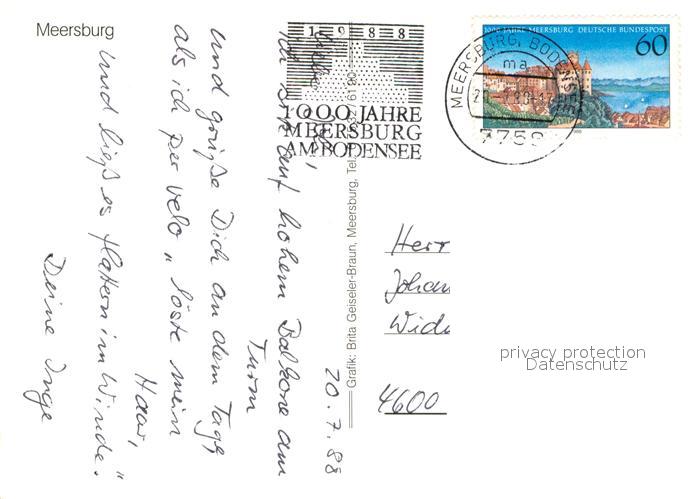 Meersburg
1 9 8 8
1000 JAHRE
MEERSBURG
AM BODENSEE
1000 JAHRE MEERSBURG DEUTSCHE BUNDESPOST
60
MEERSBURG, BODENSEE
ma
7758
20.7.88
Ich steh auf hohem Balkone am
Turm
und grüße Dich an dem Tage,
als ich per velo „löste mein
Haar,
und ließ es flattern im Winde."
Deine Inge
Grafik: Brita Geiseler-Braun, Meersburg, Tel.
Herr
Johan
4600
privacy protection
Datenschutz